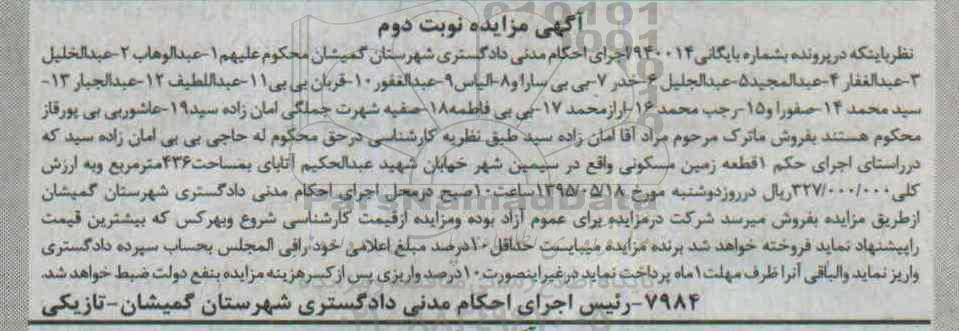 آگهی مزایده نوبت دوم
نظر باینکه در پرونده بشماره بایگانی ۹۴۰۰۱۴ اجرای احکام مدنی دادگستری شهرستان گمیشان محکوم علیهم ۱-عبدالوهاب ۲-عبدالخلیل
۳-عبدالغفار ۴-عبدالمجید ۵-عبدالجلیل ۶-خدر ۷-بی بی سارا و ۸-الیاس ۹-عبدالغفور ۱۰-قربان بی بی ۱۱-عبداللطیف ۱۲-عبدالجبار ۱۳-
سید محمد ۱۴-صفورا و ۱۵-رجب محمد ۱۶-ارازمحمد ۱۷-بی بی فاطمه ۱۸-صفیه شهرت جملگی امان زاده سید ۱۹-عاشوربی بی پورقاز
محکوم هستند بفروش ماترک مرحوم مراد آقا امان زاده سید طبق نظریه کارشناسی در حق محکوم له حاجی بی بی امان زاده سید که
در راستای اجرای حکم ۱ قطعه زمین مسکونی واقع در سیمین شهر خیابان شهید عبدالحکیم آتابای بمساحت ۴۳۶ مترمربع وبه ارزش
کلی ۳۲۷/۰۰۰/۰۰۰ ریال در روز دوشنبه مورخ ۱۳۹۵/۰۵/۱۸ ساعت ۱۰ صبح در محل اجرای احکام مدنی دادگستری شهرستان گمیشان
از طریق مزایده بفروش میرسد شرکت در مزایده برای عموم آزاد بوده و مزایده از قیمت کارشناسی شروع و بهر کس که بیشترین قیمت
را پیشنهاد نماید فروخته خواهد شد برنده مزایده میبایست حداقل ۱۰ درصد مبلغ اعلامی خود را فی المجلس بحساب سپرده دادگستری
واریز نماید والباقی آنرا ظرف مهلت ۱ ماه پرداخت نماید در غیر اینصورت ۱۰ درصد واریزی پس از کسر هزینه مزایده بنفع دولت ضبط خواهد شد.
۷۹۸۴-رئیس اجرای احکام مدنی دادگستری شهرستان گمیشان-تازیکی